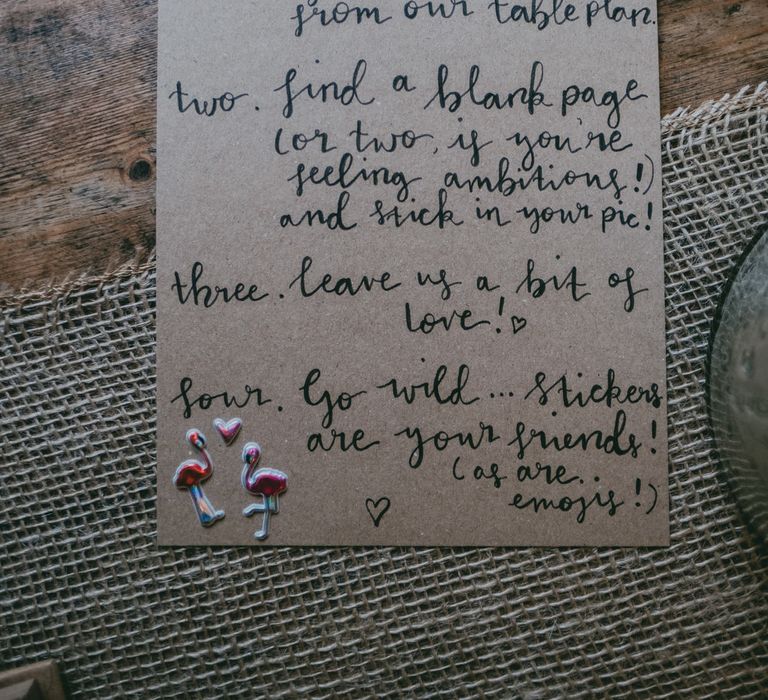 from our table plan.
two. find a blank page
(or two, if you're
feeling ambitious!)
and stick in your pic!
three. leave us a bit of
love! ♡
four. Go wild... stickers
are your friends!
(as are..
emojis!)
♡